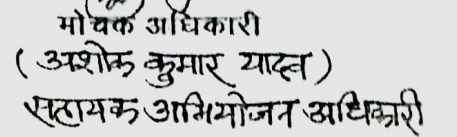 मोचक अधिकारी
(अशोक कुमार यादव)
सहायक अभियोजन अधिकारी